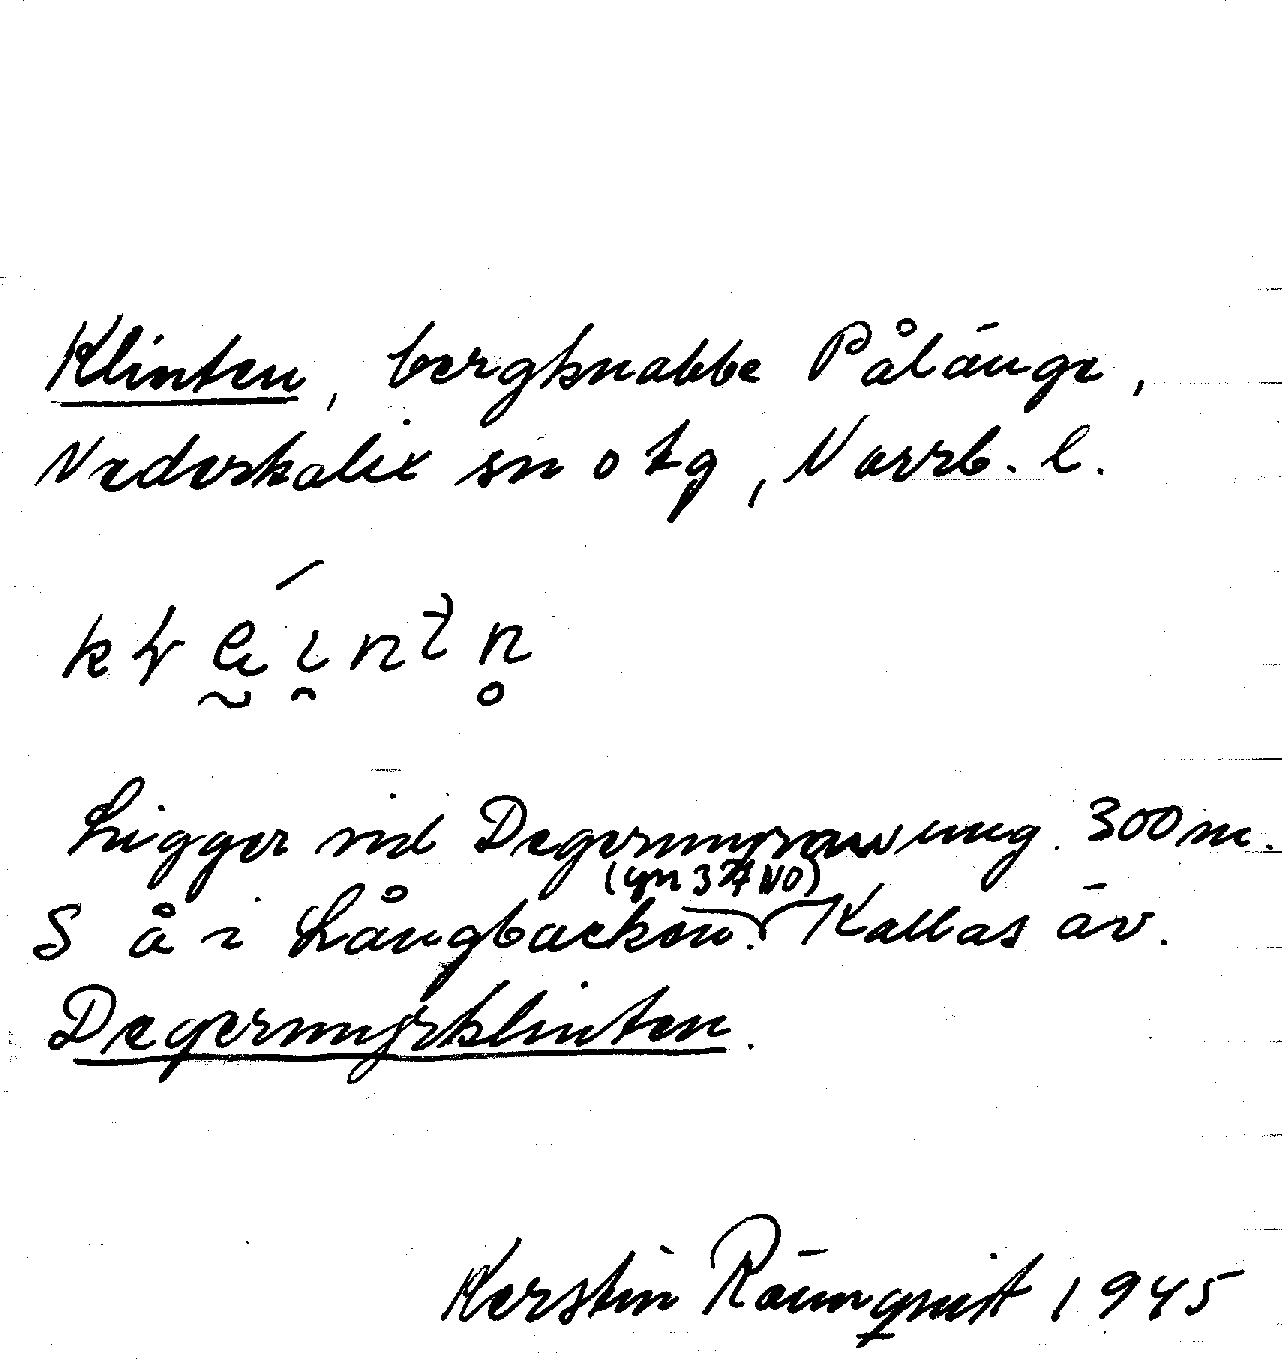 Klinten, bergknabbe Pålänge,
Nederkalix sn o tg, Norrb. l.
Ligger vid Degermyren 300 m.
S å i Långbacken. Kallas äv.
Degermyrklinten.
Kerstin Rönnqvist 1945